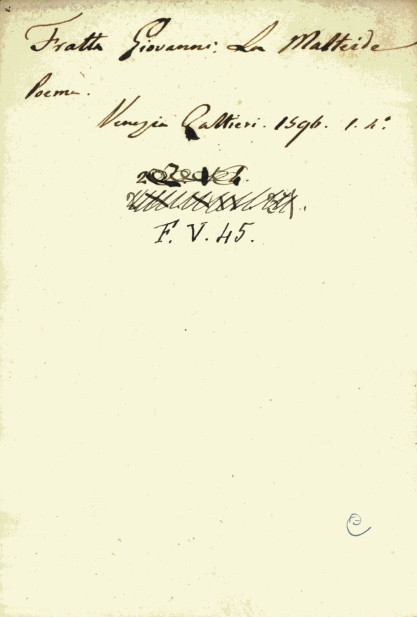 Fratta Giovanni. La Malteide
Poema.
Venezia Galtieri. 1596. 1. 4.º
F. V. 45.